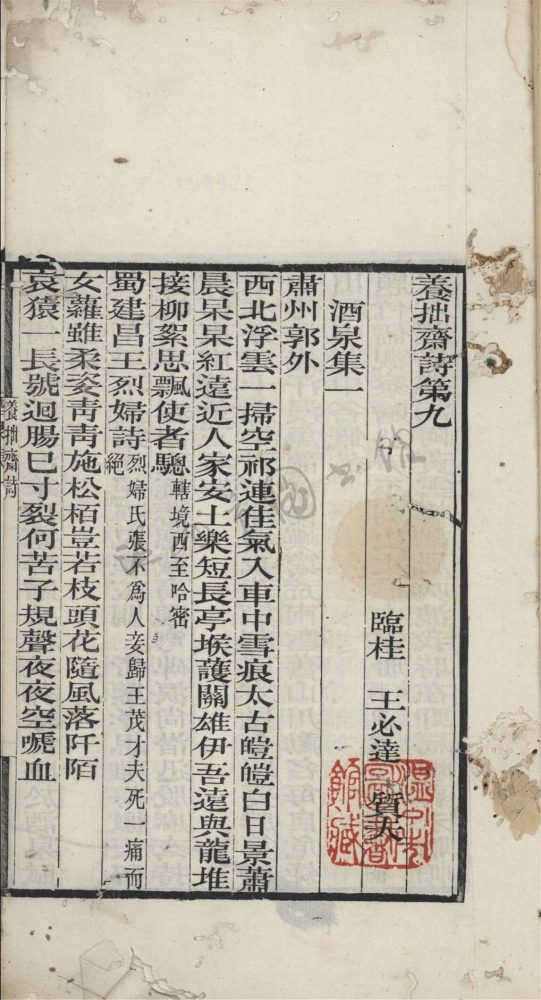 養拙齋詩第九
臨桂　王必達　質夫
酒泉集一
肅州郭外
西北浮雲一掃空祁連佳氣入車中雪痕太古皚皚白日景蕭
晨杲杲紅遠近人家安土樂短長亭堠護關雄伊吾遠與龍堆
接柳絮思飄使者驄轄境西至哈密
蜀建昌王烈婦詩烈婦氏張不爲人妾歸王茂才夫死一痛而
絕
女蘿雖柔姿靑靑施松栢豈若枝頭花隨風落阡陌
哀猿一長號迴腸已寸裂何苦子規聲夜夜空嗁血
養拙齋詩